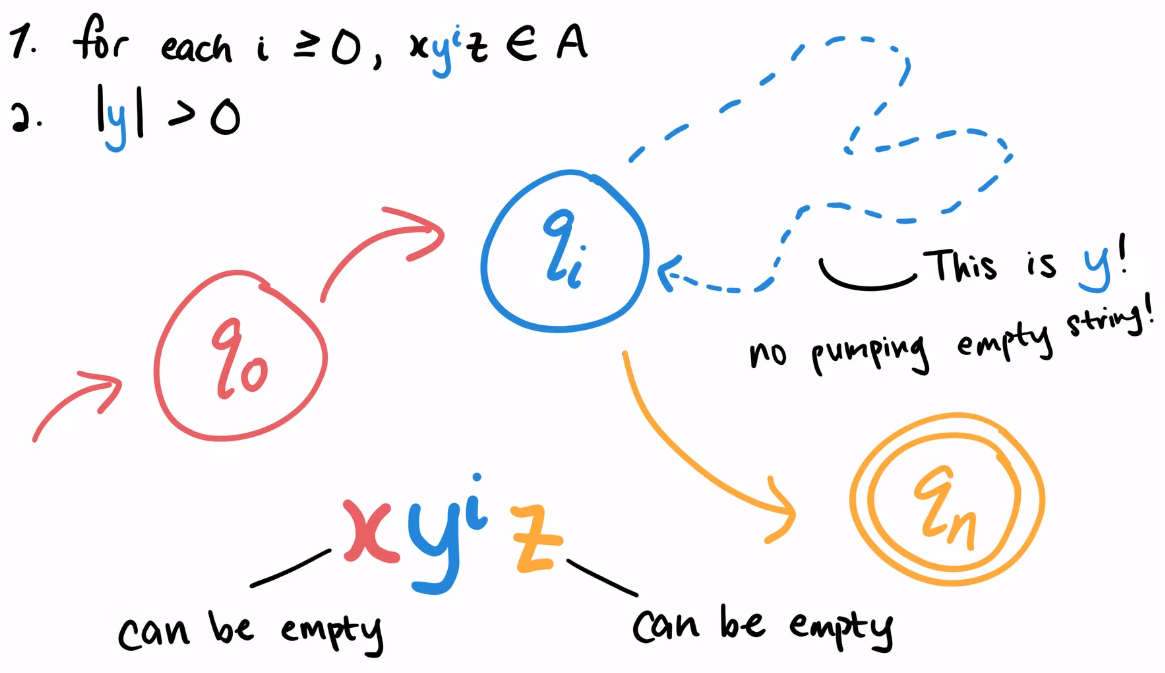 1. for each i ≥ 0, xyⁱz ∈ A
2. |y| > 0
qᵢ
This is y!
no pumping empty string!
q₀
qₙ
xyⁱz
can be empty
can be empty